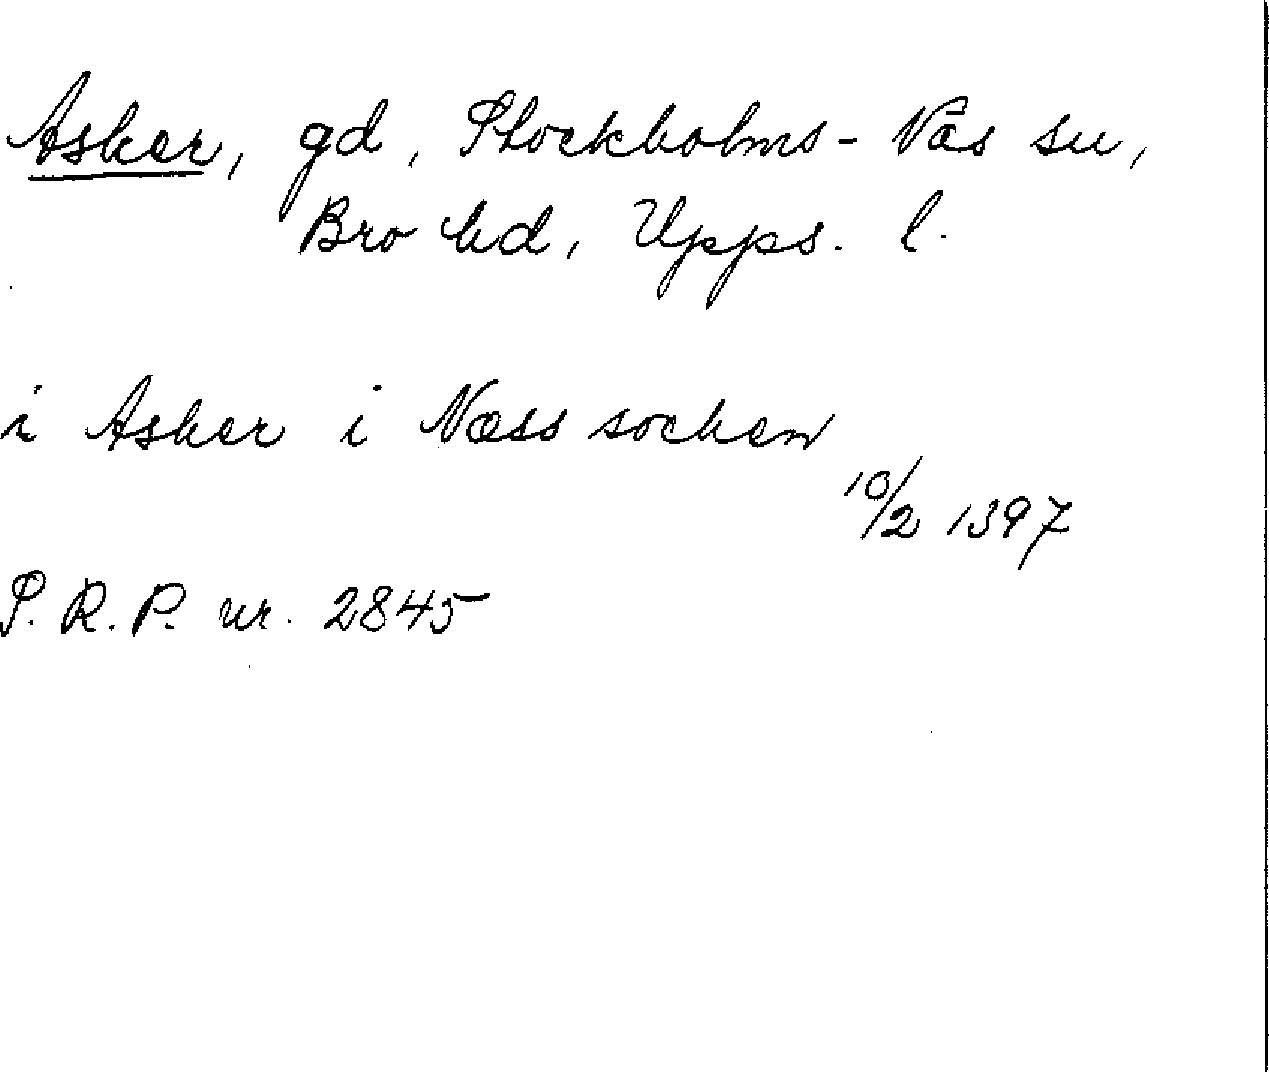 Asker, gd, Stockholms-Näs sn,
Bro hd, Upps. l.
i Asker i Næss socken
10/2 1397
S.R.P. nr. 2845